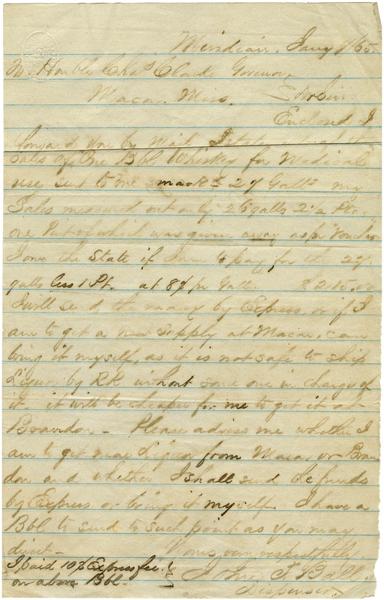 Meridian, Jany 1865
To Honble Chas Clark Governor,
Macon, Miss. Dr Sir
Enclosed I
forward you by Mail Statement of the
Sales of One Bbl Whiskey for Medical
use sent to me marked 27 Galls my
Sales measured out only 26 galls 2½ Pts,
one Pint of which was given away as pr Voucher
I owe the State if I am to pay for the 27
galls less 1 Pt. at 8$ pr Gall.
I will send the money by Express, or if I
am to get a new supply at Macon, can
bring it myself, as it is not safe to ship
Liquor by RR without some one in charge of
it. it will be cheaper for me to get it at
Brandon - Please advise me whether I
am to get more Liquor from Macon or Bran
don and whether I shall send the funds
by Express or bring it myself. I have a
Bbl to send to such point as you may
direct - Yours, very respectfully
I Paid 10$ Express fee
on above Bbl - T Ball
Dispenser